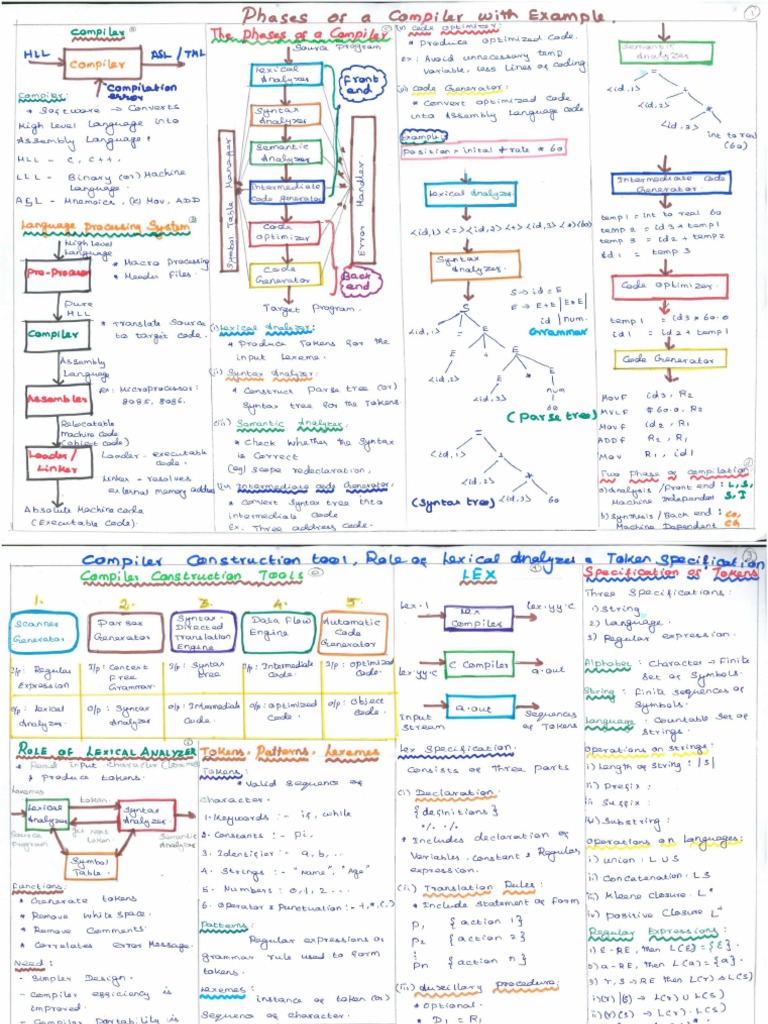 Phases of a Compiler with Example.
1
Compiler
HLL
Compiler
ASL / TML
Compilation error
Compiler:
* Software → Converts
High level Language into
Assembly Language:
HLL - C, C++.
LLL - Binary (or) Machine
Language.
ASL - Mnemoics, (k) Mov, ADD
Language Processing System
High level
Language
Pre-Processor
* Macro processing
* Header Files.
Pure
HLL
Compiler
* Translate Source
to target code.
Assembly
Language
Assembler
Ex: Microprocessor:
8085, 8086.
Relocatable
Machine code
(object code)
Loader/
Linker
Loader - executable
code.
Linker - resolves
external memory address
Absolute Machine code
(Executable code).
The Phases of a Compiler
Source program
Lexical
Analyzer
Syntax
Analyzer
Semantic
Analyzer
Intermediate
Code generator
Code
Optimizer
Code
Generator
Target Program.
Symbol Table Manager
Error Handler
Front
end
Back
end
(i) Lexical Analyzer:
* Produce Tokens for the
input Lexeme.
(ii) Syntax Analyzer:
* Construct Parse tree (or)
Syntax tree for the Tokens.
(iii) Semantic Analyzer,
* Check whether the Syntax
is Correct
(eg) Scope redeclaration,
(iv) Intermediate code Generator,
* Convert Syntax tree into
intermediate code
Ex. Three address code.
(v) Code Optimizer:
* Produce optimized code.
Ex: Avoid unnecessary temp
Variable, Less Lines of coding
(vi) Code Generator:
* Convert optimized code
into Assembly Language code
Example:
Position = inital + rate * 60
Lexical Analyzer
<id,1> <=> <id,2> <+> <id,3> <*> <60>
Syntax
Analyzer.
S → id = E
E → E+E | E*E |
id | num.
Grammar
S
<id,1>
=
E
E
+
E
<id,2>
E
*
E
<id,3>
num
60
(Parse tree)
=
<id,1>
+
<id,2>
*
<id,3>
60
(Syntax tree)
Semantic
Analyzer
=
<id,1>
+
<id,2>
*
<id,3>
int to real
(60)
Intermediate Code
Generator
temp1 = int to real 60
temp 2 = id3 * temp1
temp 3 = id2 + temp2
id1 = temp 3
Code Optimizer.
temp1 = id3 * 60.0
id1 = id2 + temp1
Code Generator
MovF id3, R2
MVLF #60.0, R2
MovF id2, R1
ADDF R2, R1
Mov R1, id1
Two Phase of compilation
a) Analysis / Front end: L, S,
Machine Independent S, I
b) Synthesis / Back end: Co,
Machine Dependent CG
Compiler Construction tool, Role of Lexical Analyzer & Token Specification
2
Compiler Construction Tools
1. 2. 3. 4. 5.
Scanner
Generator
Parser
Generator
Syntax-
Directed
Translation
Engine
Data Flow
Engine
Automatic
Code
Generator
I/p: Regular
Expression
I/p: Context
Free
Grammar
I/p: Syntax
tree
I/p: Intermediate
Code.
I/p: Optimized
Code.
O/p: Lexical
Analyzer
O/p: Syntax
Analyzer
O/p: Intermediate
Code
O/p: Optimized
Code.
O/p: Object
Code.
Role of Lexical Analyzer
* Read input Character (Lexeme)
& Produce tokens.
Lexemes
Lexical
Analyzer
token
Syntax
Analyzer
get next
token
Source
Program
Semantic
Analyzer
Symbol
Table.
Functions:
* Generate tokens
* Remove White Space.
* Remove Comments.
* Correlates error Message.
Need:
- Simpler Design.
- Compiler efficiency is
improved.
- Compiler Portability is
Tokens, Patterns, Lexemes
Tokens:
* Valid Sequence of
Character.
1. Keywords :- if, while
2. Constants :- pi,
3. Identifier :- a, b, ..
4. Strings :- "Name", "Age"
5. Numbers : 0, 1, 2 ...
6. Operator & Punctuation :- +, *, (,)
Patterns:
Regular expressions or
grammar rule used to form
tokens.
Lexemes:
instance of token (or)
Sequence of character.
LEX
Lex.l
Lex
Compiler
lex.yy.c
lex.yy.c
C Compiler
a.out
Input
Stream
a.out
Sequences
of Tokens
Lex Specification.
Consists of Three parts
(i) Declaration.
{definitions}
%%
* Includes declaration of
Variables, Constant & Regular
expression.
(ii) Translation Rules:
* Include statement of form
P1 {action 1}
P2 {action 2}
⋮
Pn {action n}
(iii) Auxillary procedure:
* Optional.
* D1 = R1
Specification of Tokens
Three Specifications:
1) String
2) Language.
3) Regular expression.
Alphabet: Character → Finite
Set of Symbols.
String: Finite Sequences of
Symbols.
Language: Countable Set of
Strings.
Operations on Strings:
i) Length of String: |S|
ii) Prefix:
iii) Suffix:
iv) Substring:
Operations on Languages:
i) union: L U S
ii) Concatenation: LS
iii) Kleene Closure: L*
iv) Positive Closure L+
Regular Expressions:
i) ε - RE, then L(ε) = {ε}.
ii) a - RE, then L(a) = {a}.
3) r, S → RE then L(r) & L(S)
i) (r) | (S) → L(r) U L(S)
ii) (r) (S) → L(r) . L(S)